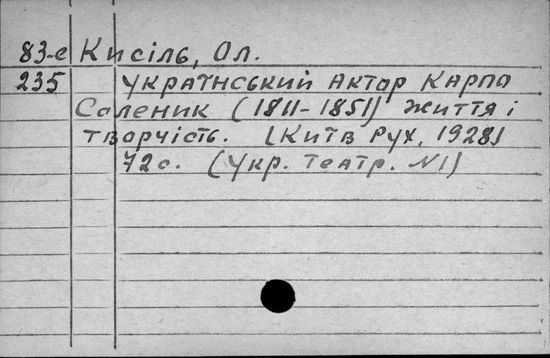 83-е Кисіль, Ол.
235 Український актор Карпо
Соленик (1811-1851) життя і
творчість. (Київ Рух, 1928)
72с. (Укр. театр. №1)